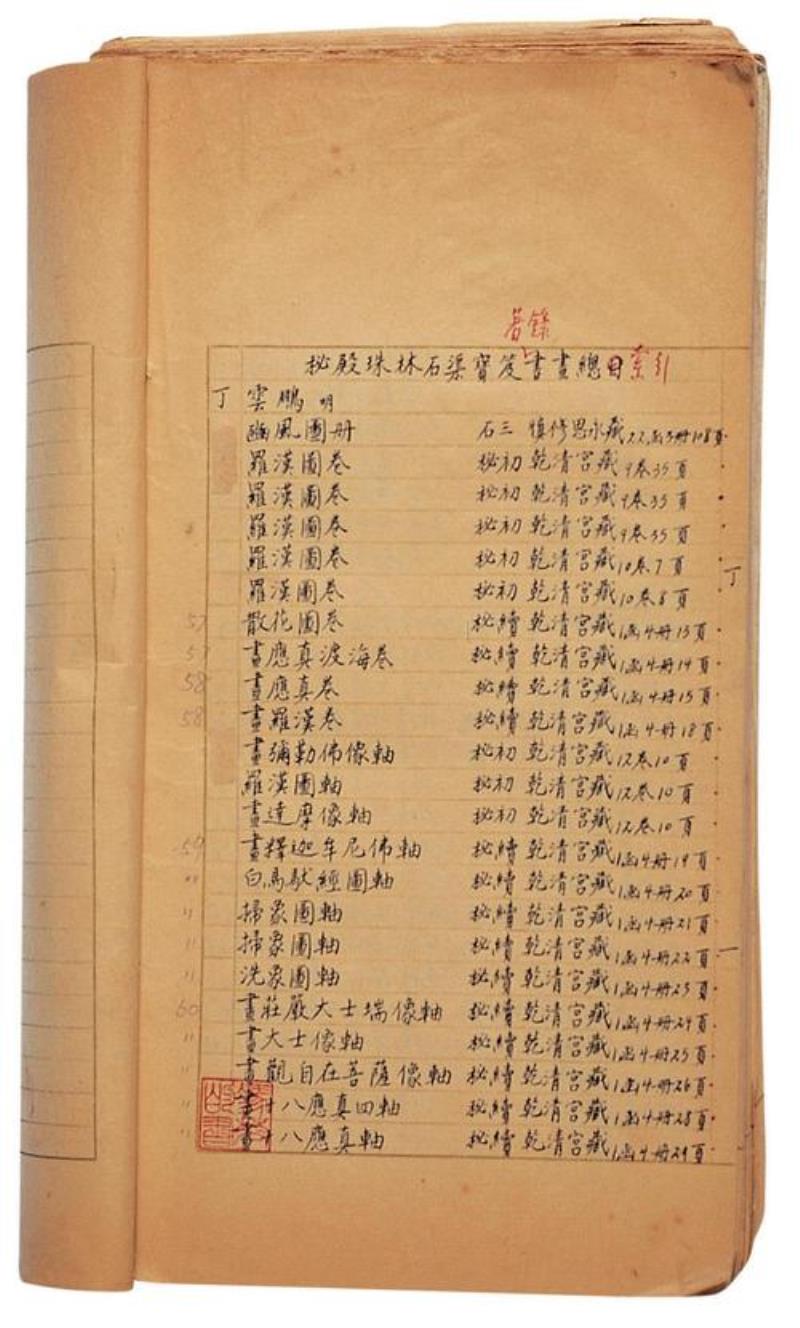 著錄
秘殿珠林石渠寶笈書畫總目索引
丁雲鵬 明
豳風圖冊 石三 慎修思永藏 22函3冊108頁
羅漢圖卷 秘初 乾清宮藏 9卷35頁
羅漢圖卷 秘初 乾清宮藏 9卷35頁
羅漢圖卷 秘初 乾清宮藏 9卷35頁
羅漢圖卷 秘初 乾清宮藏 10卷7頁
丁
羅漢圖卷 秘初 乾清宮藏 10卷8頁
57 散花圖卷 秘續 乾清宮藏 1函4冊13頁
57 畫應真渡海卷 秘續 乾清宮藏 1函4冊14頁
58 畫應真卷 秘續 乾清宮藏 1函4冊15頁
58 畫羅漢卷 秘續 乾清宮藏 1函4冊18頁
畫彌勒佛像軸 秘初 乾清宮藏 12卷10頁
羅漢圖軸 秘初 乾清宮藏 12卷10頁
畫達摩像軸 秘初 乾清宮藏 12卷10頁
59 畫釋迦牟尼佛軸 秘續 乾清宮藏 1函4冊19頁
" 白馬馱經圖軸 秘續 乾清宮藏 1函4冊20頁
" 掃象圖軸 秘續 乾清宮藏 1函4冊21頁
" 掃象圖軸 秘續 乾清宮藏 1函4冊22頁
" 洗象圖軸 秘續 乾清宮藏 1函4冊23頁
60 畫莊嚴大士瑞像軸 秘續 乾清宮藏 1函4冊24頁
" 畫大士像軸 秘續 乾清宮藏 1函4冊25頁
" 畫觀自在菩薩像軸 秘續 乾清宮藏 1函4冊26頁
" 畫十八應真四軸 秘續 乾清宮藏 1函4冊28頁
" 畫十八應真軸 秘續 乾清宮藏 1函4冊29頁